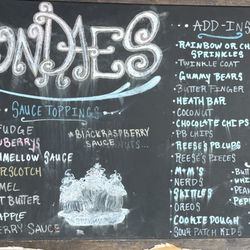 ONDAES
SAUCE TOPPINGS
FUDGE
WBERRYS
MELLOW SAUCE
ERSCOTCH
MEL
T BUTTER
APPLE
ERRY SAUCE
*BLACKRASPBERRY
SAUCE
NUTS...
ADD-INS
RAINBOW OR CH
SPRINKLES
TWINKLE COAT
GUMMY BEARS
BUTTER FINGER
HEATH BAR
COCONUT
CHOCOLATE CHIPS
PB CHIPS
REESE'S PB CUPS
REESE'S PIECES
M+M'S
NERDS
SKITTLES
OREOS
COOKIE DOUGH
SOUR PATCH KIDS
BUT
WHI
PEA
PE